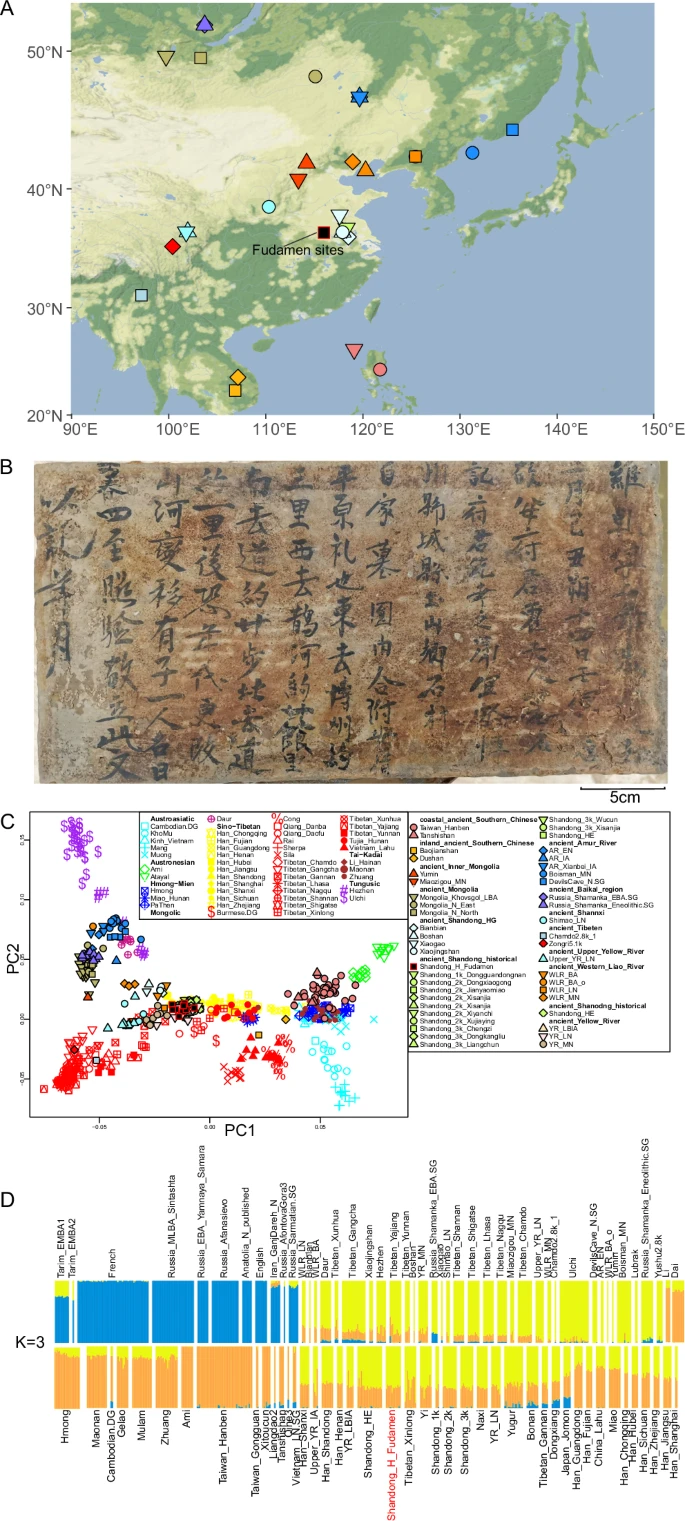 A
50°N
40°N
30°N
20°N
90°E
100°E
110°E
120°E
130°E
140°E
150°E
Fudamen sites
B
維
月己丑朔十四日
府君霍夫人
記府君
縣山鄉石村
自家墓園內合祔
平原礼也東去博州約
里西去鵲河約館里
南去道約廿步北去道
一里後恐年代更改
山河變移有子一人名日
四至照验敬立此文
以記年月
5cm
C
PC2
0.15
0.10
0.05
0.00
−0.05
−0.05
0.00
0.05
PC1
Austroasiatic
Cambodian.DG
KhoMu
Kinh_Vietnam
Mang
Muong
Austronesian
Ami
Atayal
Hmong-Mien
Hmong
Miao_Hunan
PaThen
Mongolic
Daur
Sino-Tibetan
Han_Chongqing
Han_Fujian
Han_Guangdong
Han_Henan
Han_Hubei
Han_Jiangsu
Han_Shandong
Han_Shanghai
Han_Shanxi
Han_Sichuan
Han_Zhejiang
Burmese.DG
Cong
Qiang_Danba
Qiang_Daofu
Rai
Sherpa
Sila
Tibetan_Chamdo
Tibetan_Gangcha
Tibetan_Gannan
Tibetan_Lhasa
Tibetan_Nagqu
Tibetan_Shannan
Tibetan_Shigatse
Tibetan_Xinlong
Tibetan_Xunhua
Tibetan_Yajiang
Tibetan_Yunnan
Tujia_Hunan
Vietnam_Lahu
Tai-Kadai
Li_Hainan
Maonan
Zhuang
Tungusic
Hezhen
Ulchi
coastal_ancient_Southern_Chinese
Taiwan_Hanben
Tanshishan
inland_ancient_Southern_Chinese
Baojianshan
Dushan
ancient_Inner_Mongolia
Yumin
Miaozigou_MN
ancient_Mongolia
Mongolia_Khovsgol_LBA
Mongolia_N_East
Mongolia_N_North
ancient_Shandong_HG
Bianbian
Boshan
Xiaogao
Xiaojingshan
ancient_Shandong_historical
Shandong_H_Fudamen
Shandong_1k_Dongguandongnan
Shandong_2k_Dongxiaogong
Shandong_2k_Jianyaomiao
Shandong_2k_Xisanjia
Shandong_2k_Xisanjia
Shandong_2k_Xiyanchi
Shandong_2k_Xujiaying
Shandong_3k_Chengzi
Shandong_3k_Dongkangliu
Shandong_3k_Liangchun
Shandong_3k_Wucun
Shandong_3k_Xisanjia
Shandong_HE
ancient_Amur_River
AR_EN
AR_IA
AR_Xianbei_IA
Boisman_MN
DevilsCave_N.SG
ancient_Baikal_region
Russia_Shamanka_EBA.SG
Russia_Shamanka_Eneolithic.SG
ancient_Shannxi
Shimao_LN
ancient_Tibeten
Chamdo2.8k_1
Zongri5.1k
ancient_Upper_Yellow_River
Upper_YR_LN
ancient_Western_Liao_River
WLR_BA
WLR_BA_o
WLR_LN
WLR_MN
ancient_Shanodng_historical
Shandong_HE
ancient_Yellow_River
YR_LBIA
YR_LN
YR_MN
D
Tarim_EMBA1
Tarim_EMBA2
French
Russia_MLBA_Sintashta
Russia_EBA_Yamnaya_Samara
Russia_Afanasievo
Anatolia_N_published
English
Iran_GanjDareh_N
Russia_AfontovaGora3
Russia_Sarmatian.SG
WLR_LN
Bianbian
WLR_BA
Daur
Tibetan_Xunhua
Tibetan_Gangcha
Xiaojingshan
Hezhen
Tibetan_Yajiang
Tibetan_Yunnan
Boshan
YR_MN
Russia_Shamanka_EBA.SG
Xiaogao
Shimao_LN
Tibetan_Shannan
Tibetan_Shigatse
Tibetan_Lhasa
Tibetan_Nagqu
Miaozigou_MN
Tibetan_Chamdo
Upper_YR_LN
WLR_MN
Chamdo2.8k_1
Ulchi
DevilsCave_N.SG
AR_EN
WLR_BA_o
Yumin
Boisman_MN
Lubrak
Russia_Shamanka_Eneolithic.SG
Yushu2.8k
Li
Dai
K=3
Hmong
Maonan
Cambodian.DG
Gelao
Mulam
Zhuang
Ami
Taiwan_Hanben
Taiwan_Gongguan
Xitoucun
Liangdao2
Tanshishan
Qihe3
Vietnam_LN.SG
Han_Shanxi
Upper_YR_IA
Han_Shandong
Han_Henan
YR_LBIA
Shandong_HE
Shandong_H_Fudamen
Tibetan_Xinlong
Yi
Shandong_1k
Shandong_2k
Shandong_3k
Naxi
YR_LN
Yugur
Bonan
Tibetan_Gannan
Dongxiang
Japan_Jomon
Han_Guangdong
Han_Fujian
China_Lahu
Miao
Han_Chongqing
Han_Hubei
Han_Sichuan
Han_Zhejiang
Han_Jiangsu
Han_Shanghai